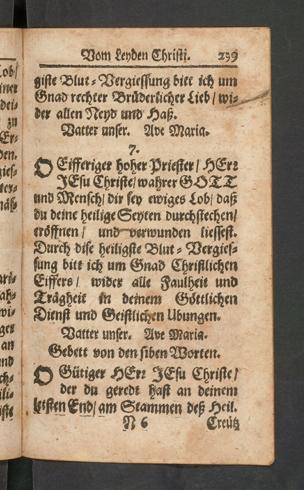 Vom Leyden Christi. 239
giste Blut-Vergiessung bitt ich um
Gnad rechter Brüderlicher Lieb/ wi-
der allen Neyd und Haß.
Vatter unser. Ave Maria.
7.
O Eifferiger hoher Priester/ HErr
JEsu Christe/ wahrer GOTT
und Mensch/ dir sey ewiges Lob/ daß
du deine heilige Seyten durchstechen/
eröffnen/ und verwunden liessest.
Durch dise heiligste Blut-Vergies-
sung bitt ich um Gnad Christlichen
Eiffers/ wider alle Faulheit und
Trägheit in deinem Göttlichen
Dienst und Geistlichen Ubungen.
Vatter unser. Ave Maria.
Gebett von den siben Worten.
O Gütiger HErr JEsu Christe/
der du geredt hast an deinem
letsten End/ am Stammen deß Heil.
N 6 Creutz